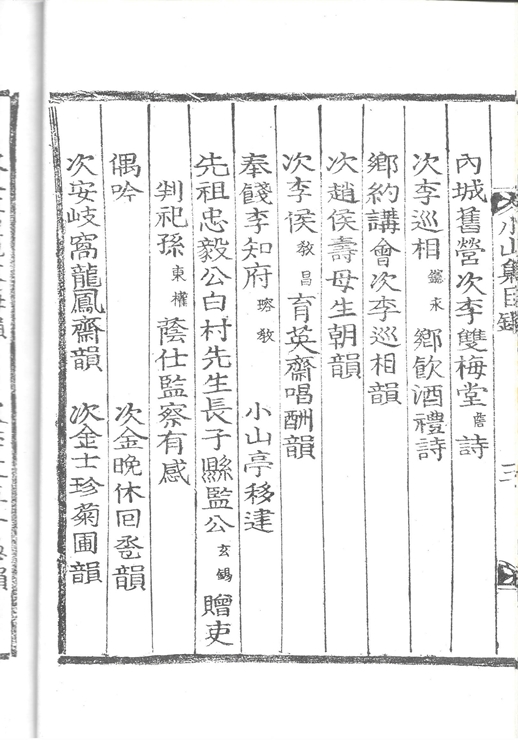 小山集目錄 二
內城舊營次李雙梅堂 詹 詩
次李巡相 鑣永 鄕飮酒禮詩
鄕約講會次李巡相韻
次趙侯壽母生朝韻
次李侯 敎昌 育英齋唱酬韻
奉餞李知府 璿敎 小山亭移建
先祖忠毅公白村先生長子縣監公 玄錫 贈吏
判祀孫 東權 蔭仕監察有感
偶吟 次金晩休回甲韻
次安岐窩龍鳳齋韻 次金士珍菊圃韻